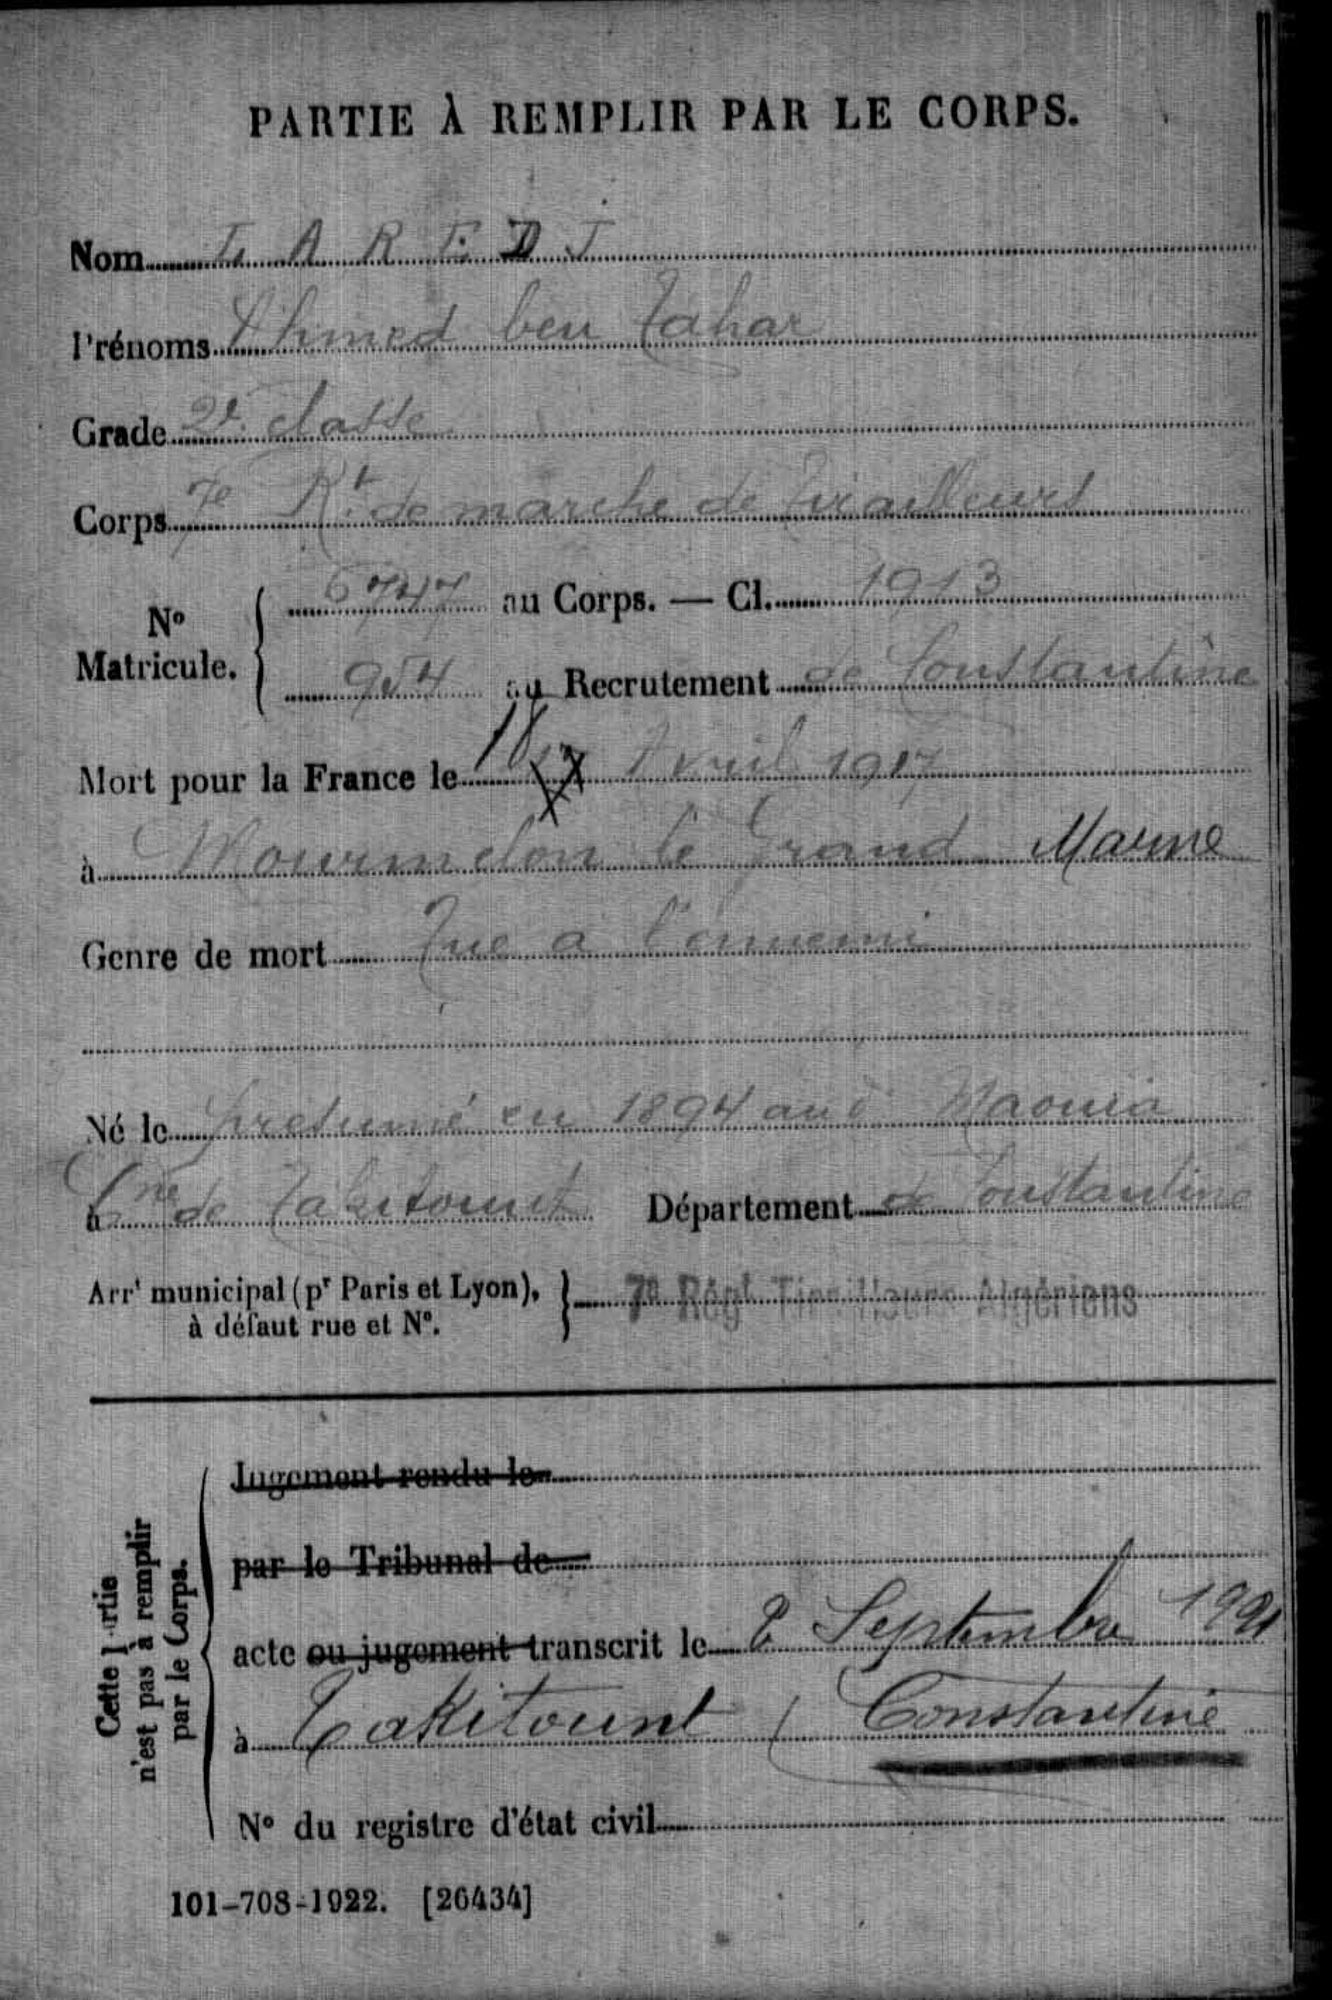 PARTIE À REMPLIR PAR LE CORPS.
Nom LAREDJ
Prénoms Ahmed ben Tahar
Grade 2e classe
Corps 7e Rt de marche de tirailleurs
No Matricule. 6747 au Corps. — Cl. 1913
954 au Recrutement de Constantine
Mort pour la France le 18 Avril 1917
à Mourmelon le Grand Marne
Genre de mort Tué à l'ennemi
Né le présumé en 1894 au d Maouia
à Cne de Takitount Département de Constantine
Arrt municipal (pr Paris et Lyon),
à défaut rue et No.
7e Régt Tirailleurs Algériens
Cette partie
n'est pas à remplir
par le Corps.
Jugement rendu le
par le Tribunal de
acte ou jugement transcrit le 2 Septembre
à Takitount (Constantine
No du registre d'état civil
101-708-1922. [26434]